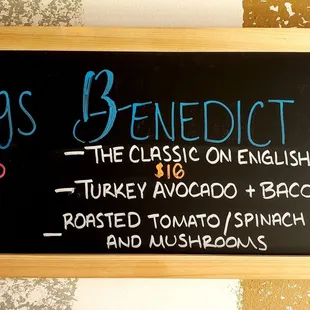 gs BENEDICT
- THE CLASSIC ON ENGLISH
$16
- TURKEY AVOCADO + BACO
- ROASTED TOMATO/SPINACH
AND MUSHROOMS